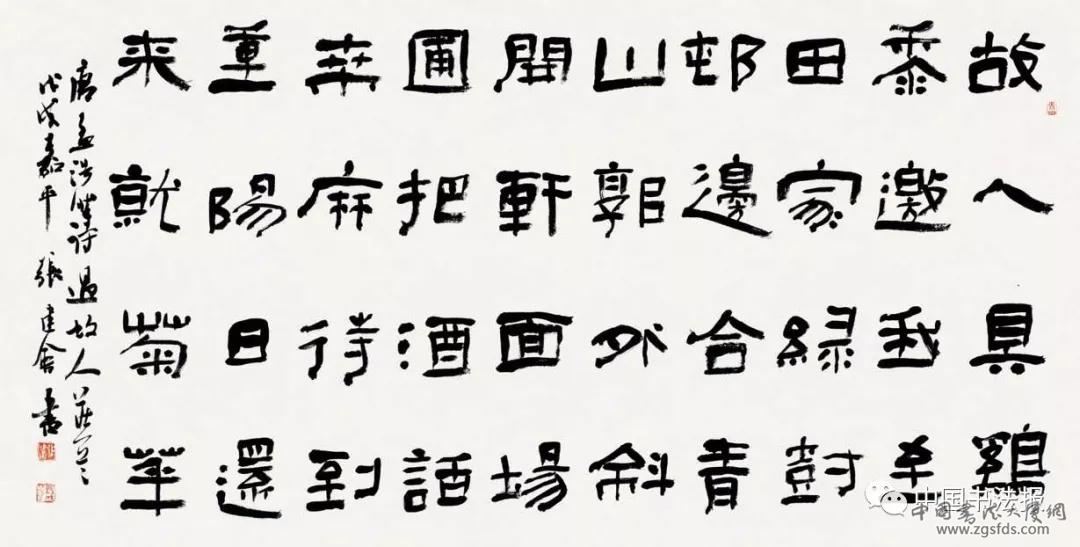 故人具鷄
黍邀我至
田家緑尌
邨邊合青
山郭外斜
開軒面場
圃把酒話
桒麻待到
重陽日還
来就菊華
唐孟浩然詩過故人莊
戊戌嘉平 張建會書
中国书法报
中國書法大廈網
www.zgsfds.com